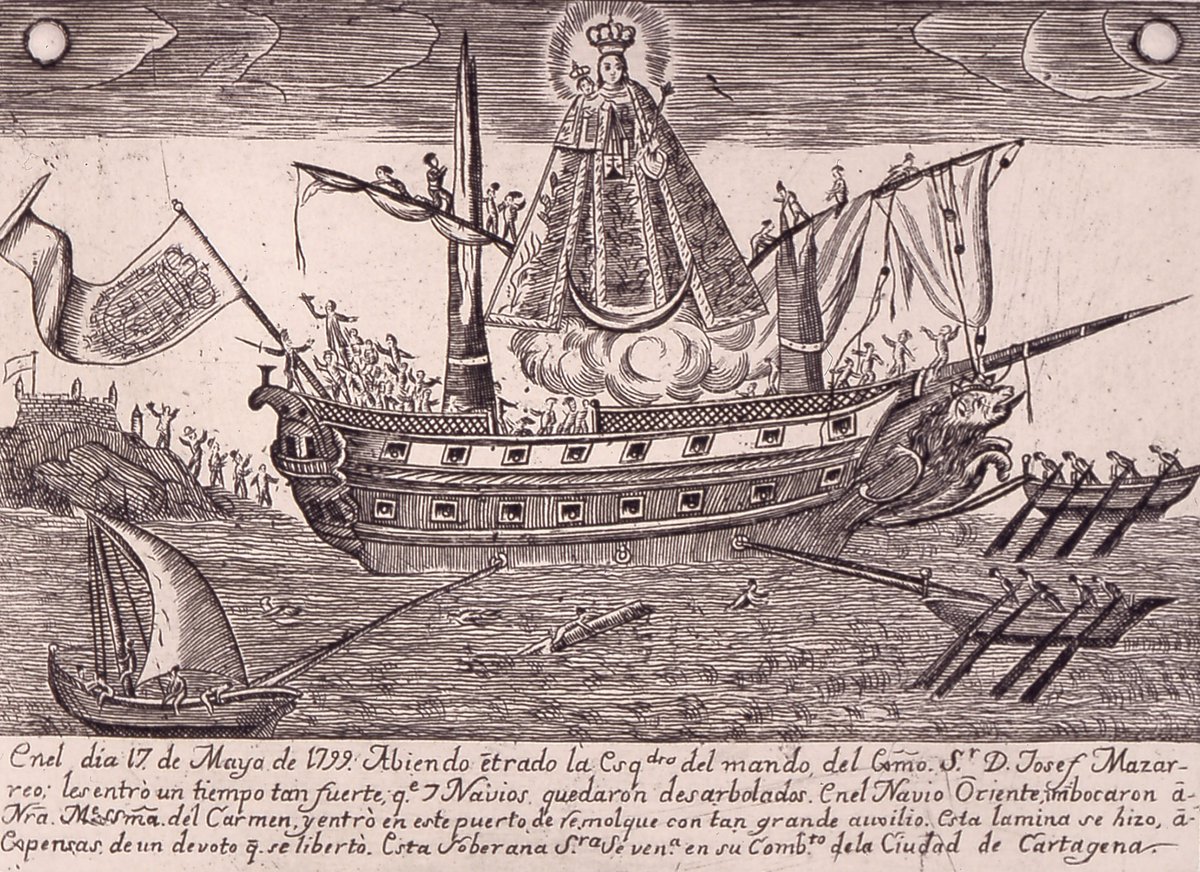 Enel dia 17 de Mayo de 1799. Abiendo ẽtrado la Esqdro del mando, del Exm̃o. Sr D. Josef Mazar-
reo; les entrò un tiempo tan fuerte, q.e 7 Navios quedaron desarbolados. Enel Navio Õriente, imbocaron ā-
Nra. Me. SSm̃a. del Carmen, y entrò en este puerto de remolque con tan grande auxilio. Esta lamina se hizo, ā-
Expensas, de un devoto q̃. se libertò. Esta Soberana S.ra Se ven.a en su Comb.to de la Ciudad de Cartagena.